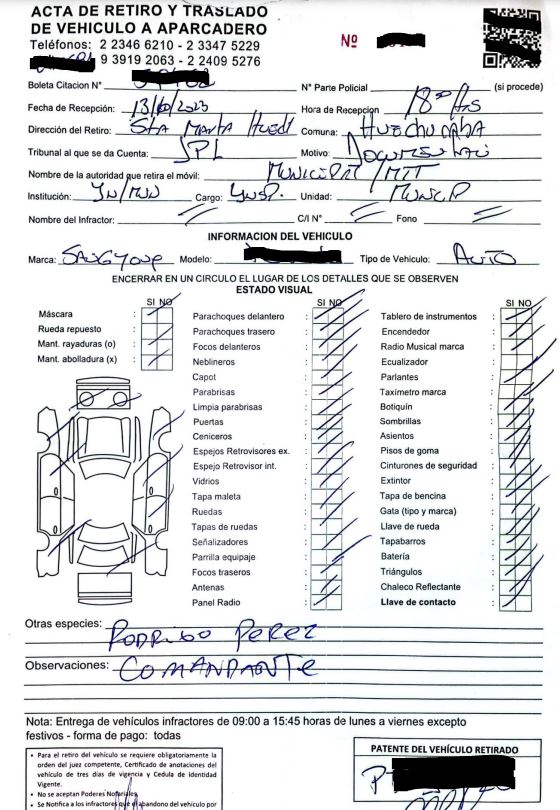 ACTA DE RETIRO Y TRASLADO
DE VEHICULO A APARCADERO
Teléfonos: 2 2346 6210 - 2 3347 5229
9 3919 2063 - 2 2409 5276
Nº
Boleta Citacion N°
N° Parte Policial (si procede)
Fecha de Recepción: 13/10/2023 Hora de Recepcion 18:00 Hs
Dirección del Retiro: Sta Marta Huech Comuna: Huechuraba
Tribunal al que se da Cuenta: JPL Motivo: Documental
Nombre de la autoridad que retira el móvil: Municipal / MTT
Institución: Cargo: Insp. Unidad: Municp
Nombre del Infractor: C/I N° Fono
INFORMACION DEL VEHICULO
Marca: Modelo: Tipo de Vehiculo: Auto
ENCERRAR EN UN CIRCULO EL LUGAR DE LOS DETALLES QUE SE OBSERVEN
ESTADO VISUAL
SI NO
Máscara :
Rueda repuesto :
Mant. rayaduras (o) :
Mant. abolladura (x) :
SI NO
Parachoques delantero :
Parachoques trasero :
Focos delanteros :
Neblineros :
Capot :
Parabrisas :
Limpia parabrisas :
Puertas :
Ceniceros :
Espejos Retrovisores ex. :
Espejo Retrovisor int. :
Vidrios :
Tapa maleta :
Ruedas :
Tapas de ruedas :
Señalizadores :
Parrilla equipaje :
Focos traseros :
Antenas :
Panel Radio :
SI NO
Tablero de instrumentos :
Encendedor :
Radio Musical marca :
Ecualizador :
Parlantes :
Taxímetro marca :
Botiquín :
Sombrillas :
Asientos :
Pisos de goma :
Cinturones de seguridad :
Extintor :
Tapa de bencina :
Gata (tipo y marca) :
Llave de rueda :
Tapabarros :
Batería :
Triángulos :
Chaleco Reflectante :
Llave de contacto :
Otras especies: Rodrigo Perez
Observaciones: Comandante
Nota: Entrega de vehículos infractores de 09:00 a 15:45 horas de lunes a viernes excepto
festivos - forma de pago: todas
• Para el retiro del vehículo se requiere obligatoriamente la
orden del juez competente, Certificado de anotaciones del
vehículo de tres días de vigencia y Cedula de identidad
Vigente.
• No se aceptan Poderes Notariales
• Se Notifica a los infractores que el abandono del vehículo por
PATENTE DEL VEHÍCULO RETIRADO
P